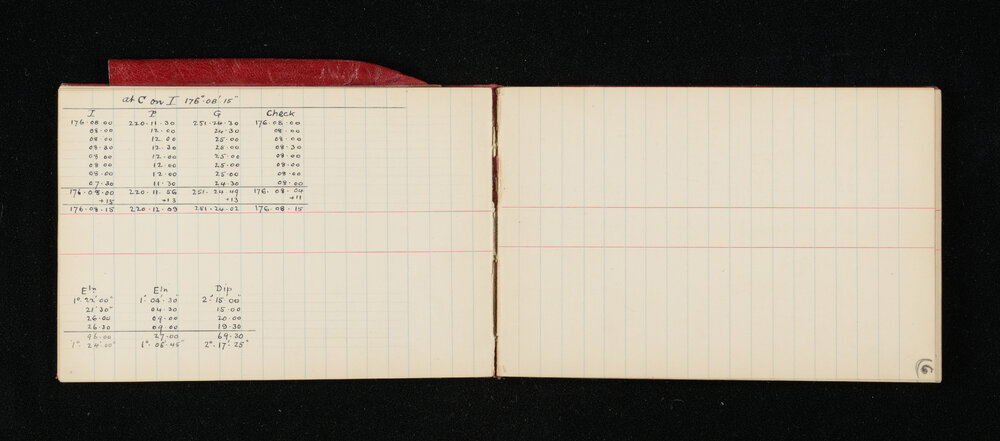 at C on I 176°·08'·15"
I P G Check
176·08·00 220·11·30 251·24·30 176·08·00
08·00 12·00 24·30 08·00
08·00 12·00 25·00 08·00
08·30 12·30 25·00 08·30
08·00 12·00 25·00 08·00
08·00 12·00 25·00 08·00
08·00 12·00 25·00 08·00
07·30 11·30 24·30 08·00
176·08·00 220·11·56 251·24·49 176·08·04
+15 +13 +13 +11
176·08·15 220·12·09 251·24·02 176·08·15
Eln Eln Dip
1°·22'·00" 1°·04'·30" 2°·15'·00"
21·30" 04·30 15·00
26·00 09·00 20·00
26·30 09·00 19·30
96·00 27·00 69·30
1°·24'·00" 1°·06'·45" 2°·17'·25"
6